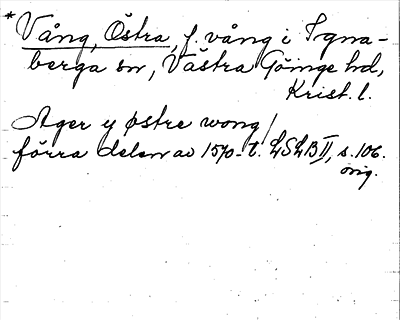 * Vång, Östra, f. vång i Igna-
berga sn, Västra Göinge hd,
Krist. l.
Ager y østre wong/
förra delen av 1570-t. LSLB II, s. 106.
orig.